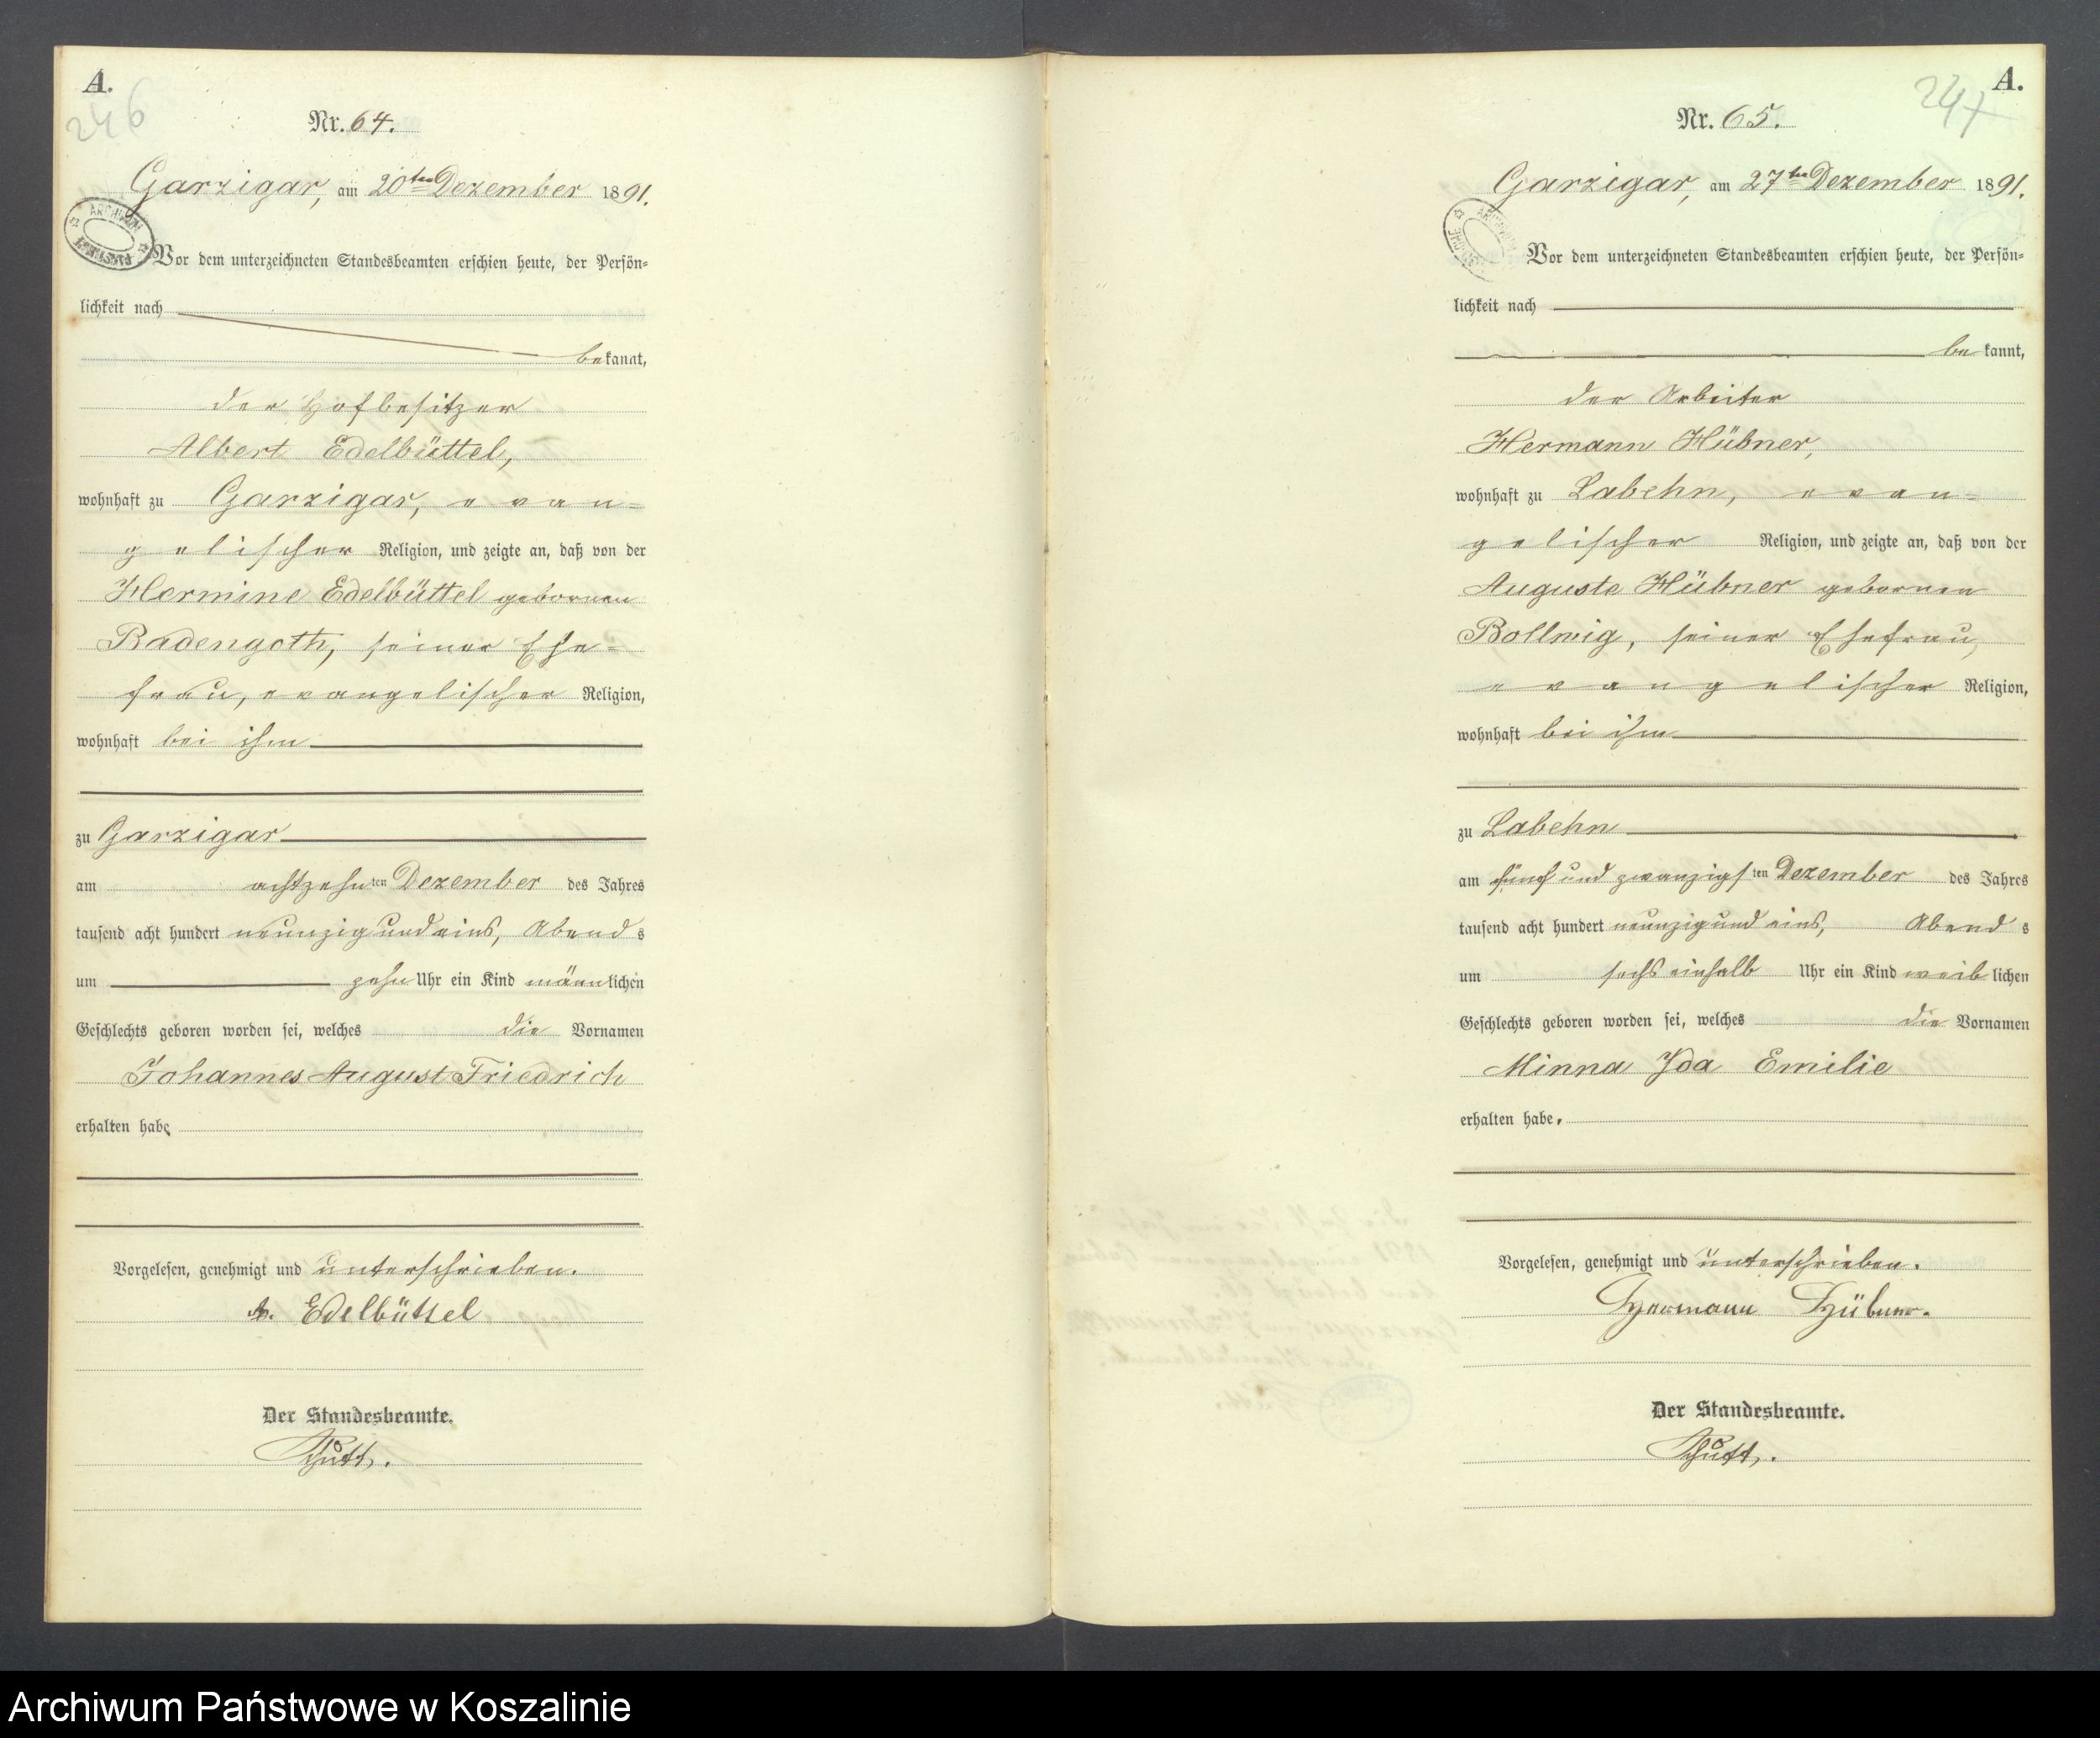 A.
246
Nr. 64.
Garzigar, am 20ten Dezember 1891.
Vor dem unterzeichneten Standesbeamten erschien heute, der Persön-
lichkeit nach
bekannt,
der Hofbesitzer
Albert Edelbüttel,
wohnhaft zu Garzigar, evan-
gelischer Religion, und zeigte an, daß von der
Hermine Edelbüttel gebornen
Radengoth, seiner Ehe-
frau, evangelischer Religion,
wohnhaft bei ihm
zu Garzigar
am achtzehnten Dezember des Jahres
tausend acht hundert neunzig und eins, Abends
um zehn Uhr ein Kind männlichen
Geschlechts geboren worden sei, welches die Vornamen
Johannes August Friedrich
erhalten habe
Vorgelesen, genehmigt und unterschrieben.
A. Edelbüttel
Der Standesbeamte.
A.
247
Nr. 65.
Garzigar, am 27ten Dezember 1891.
Vor dem unterzeichneten Standesbeamten erschien heute, der Persön-
lichkeit nach
bekannt,
der Arbeiter
Hermann Hübner,
wohnhaft zu Labehn, evan-
gelischer Religion, und zeigte an, daß von der
Auguste Hübner gebornen
Bollwig, seiner Ehefrau,
evangelischer Religion,
wohnhaft bei ihm
zu Labehn
am fünf und zwanzigsten Dezember des Jahres
tausend acht hundert neunzig und eins, Abends
um sechs einhalb Uhr ein Kind weiblichen
Geschlechts geboren worden sei, welches die Vornamen
Minna Ida Emilie
erhalten habe.
Vorgelesen, genehmigt und unterschrieben.
Hermann Hübner.
Der Standesbeamte.
Archiwum Państwowe w Koszalinie